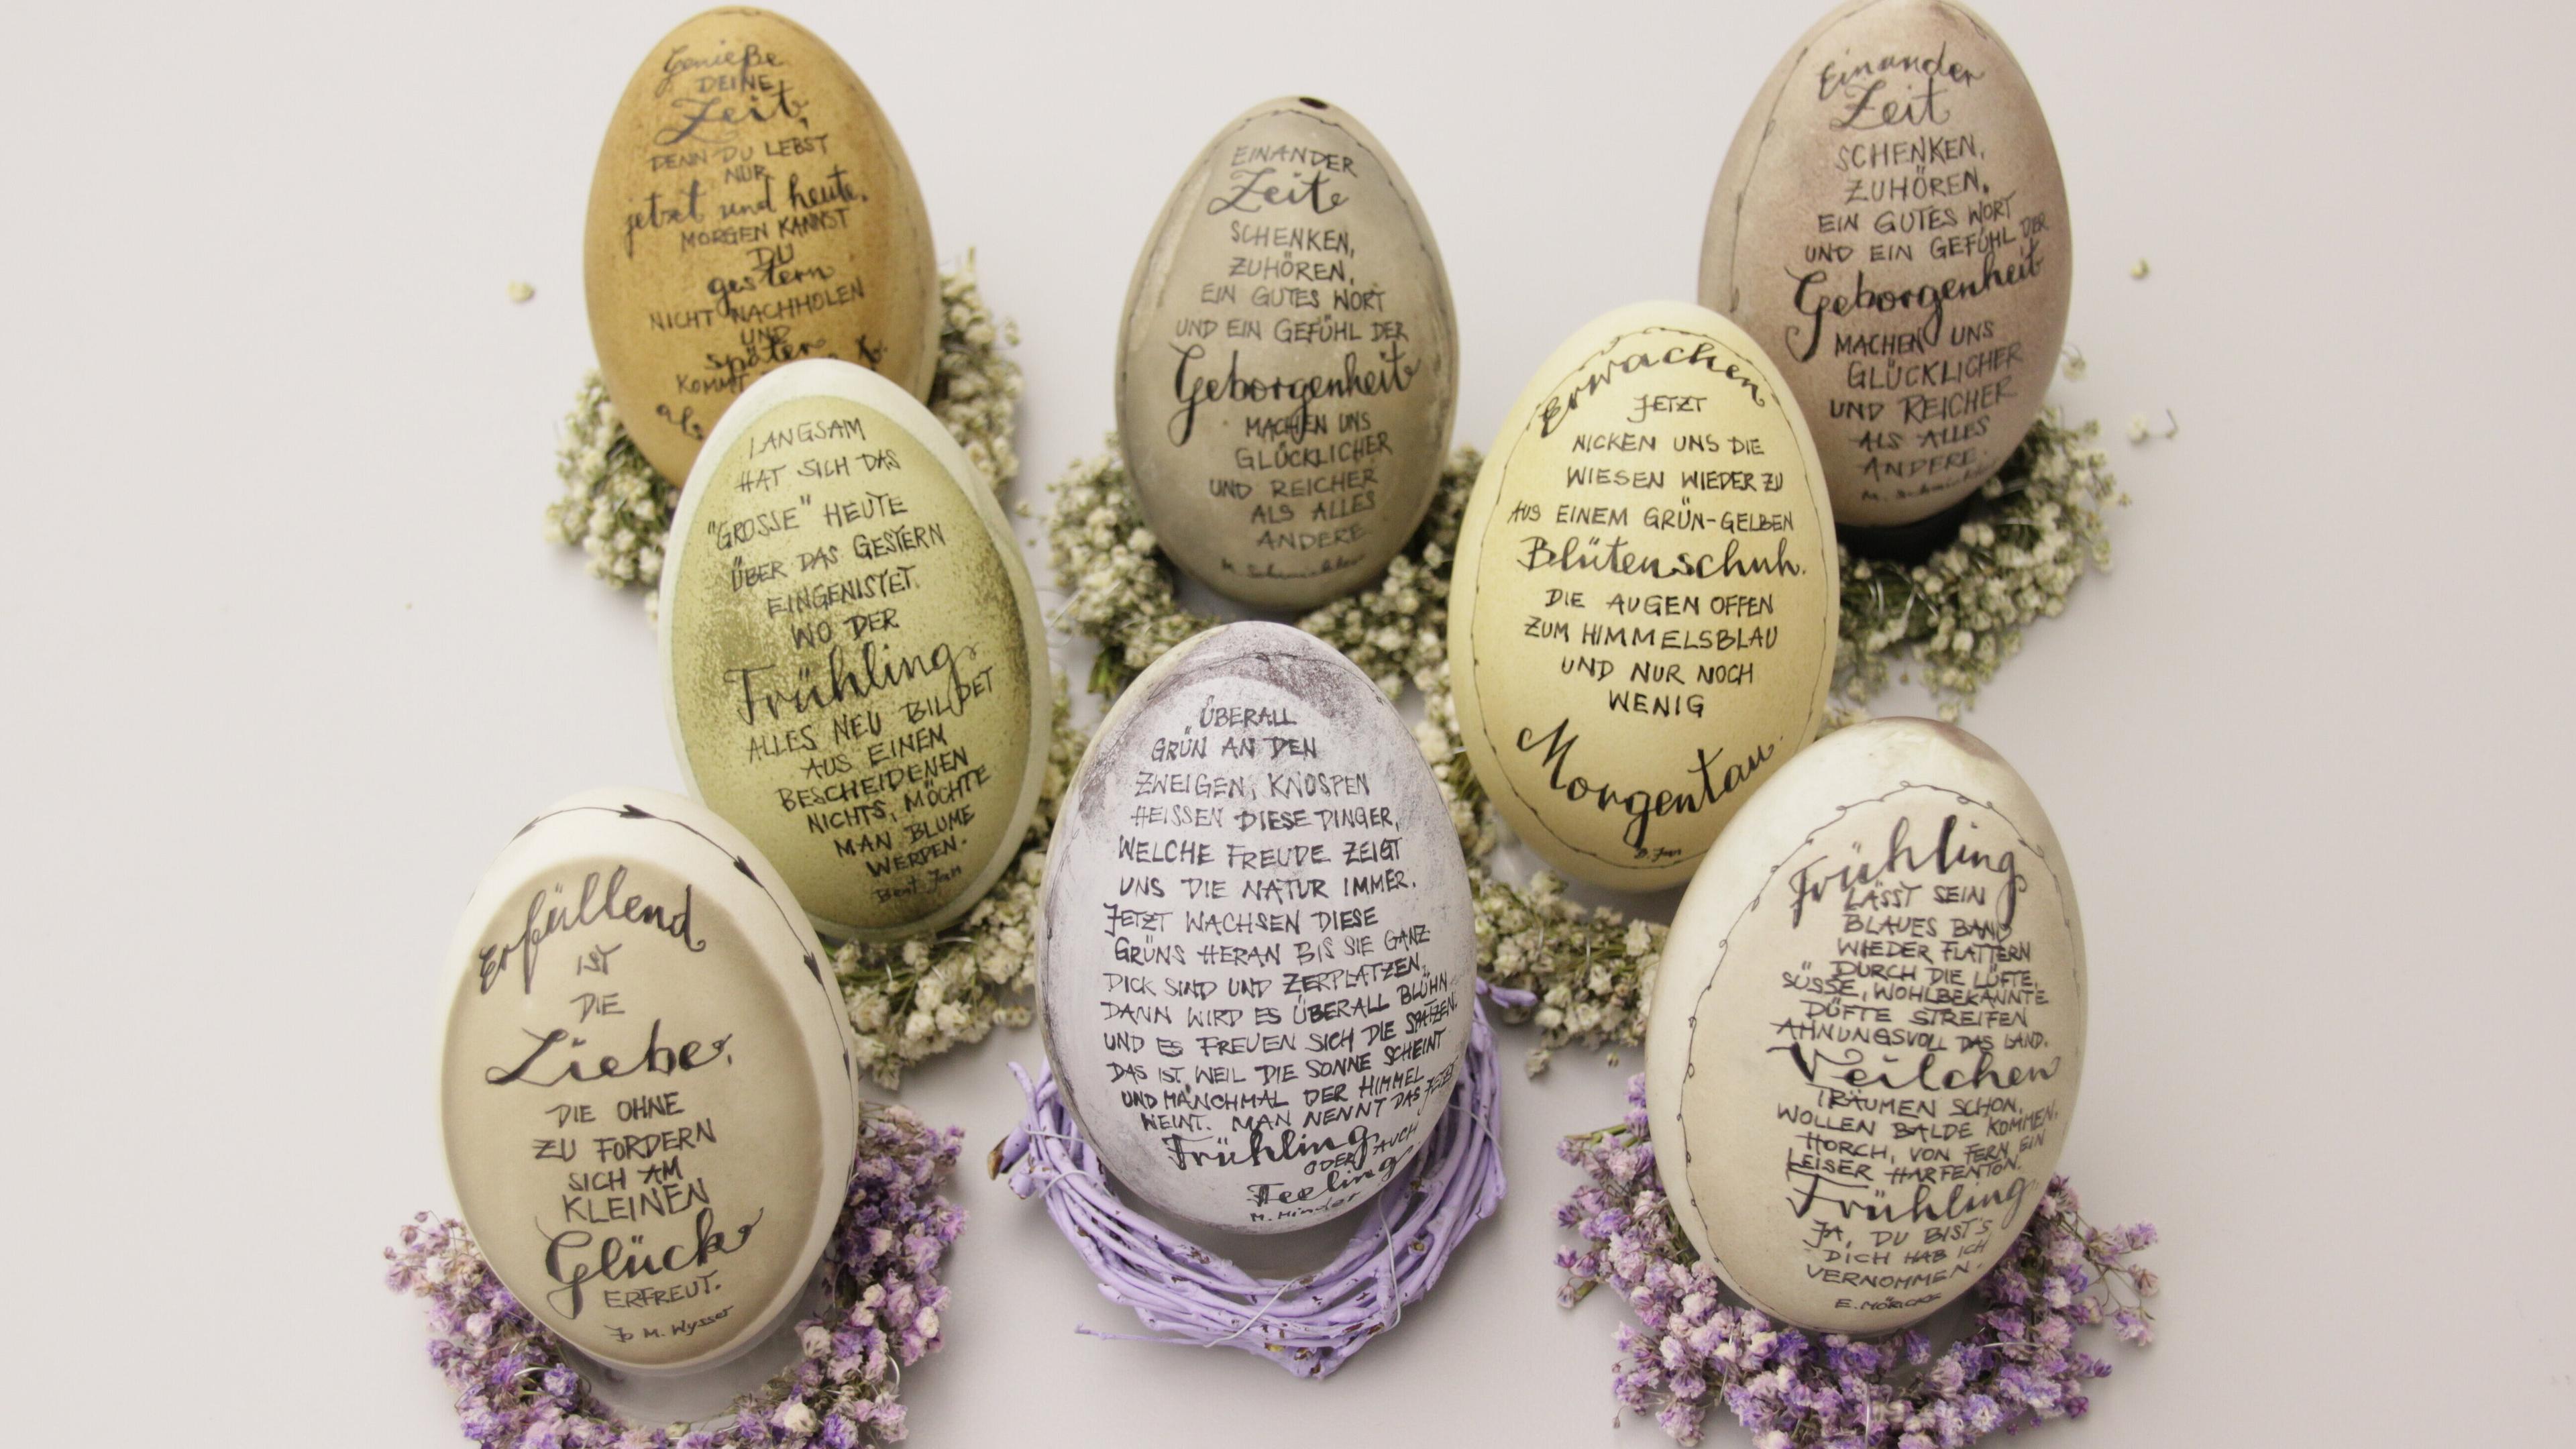 Genieße
DEINE
Zeit,
DENN DU LEBST
NUR
jetzt und heute.
MORGEN KANNST
DU
gestern
NICHT NACHHOLEN
UND
später
KOMMT
EINANDER
Zeite
SCHENKEN,
ZUHÖREN,
EIN GUTES WORT
UND EIN GEFÜHL DER
Geborgenheit
MACHEN UNS
GLÜCKLICHER
UND REICHER
ALS ALLES
ANDERE.
Einander
Zeit
SCHENKEN,
ZUHÖREN,
EIN GUTES WORT
UND EIN GEFÜHL DER
Geborgenheit
MACHEN UNS
GLÜCKLICHER
UND REICHER
ALS ALLES
ANDERE.
LANGSAM
HAT SICH DAS
"GROSSE" HEUTE
ÜBER DAS GESTERN
EINGENISTET.
WO DER
Frühling
ALLES NEU BILDET
AUS EINEM
BESCHEIDENEN
NICHTS, MÖCHTE
MAN BLUME
WERDEN.
Erwachen
JETZT
NICKEN UNS DIE
WIESEN WIEDER ZU
AUS EINEM GRÜN-GELBEN
Blütenschuh.
DIE AUGEN OFFEN
ZUM HIMMELSBLAU
UND NUR NOCH
WENIG
Morgentau.
Erfüllend
IST
DIE
Liebe,
DIE OHNE
ZU FORDERN
SICH AM
KLEINEN
Glück
ERFREUT.
Jo M. Wysser
ÜBERALL
GRÜN AN DEN
ZWEIGEN, KNOSPEN
HEISSEN DIESE DINGER,
WELCHE FREUDE ZEIGT
UNS DIE NATUR IMMER.
JETZT WACHSEN DIESE
GRÜNS HERAN BIS SIE GANZ
DICK SIND UND ZERPLATZEN,
DANN WIRD ES ÜBERALL BLÜHN
UND ES FREUEN SICH DIE SPATZEN.
DAS IST WEIL DIE SONNE SCHEINT
UND MANCHMAL DER HIMMEL
WEINT. MAN NENNT DAS JETZT
Frühling
ODER AUCH
Feeling
M. Minder
Frühling
LÄSST SEIN
BLAUES BAND
WIEDER FLATTERN
DURCH DIE LÜFTE,
SÜSSE, WOHLBEKANNTE
DÜFTE STREIFEN
AHNUNGSVOLL DAS LAND.
Veilchen
TRÄUMEN SCHON,
WOLLEN BALDE KOMMEN.
HORCH, VON FERN EIN
LEISER HARFENTON.
Frühling
JA, DU BIST'S
DICH HAB ICH
VERNOMMEN.
E. MÖRICKE